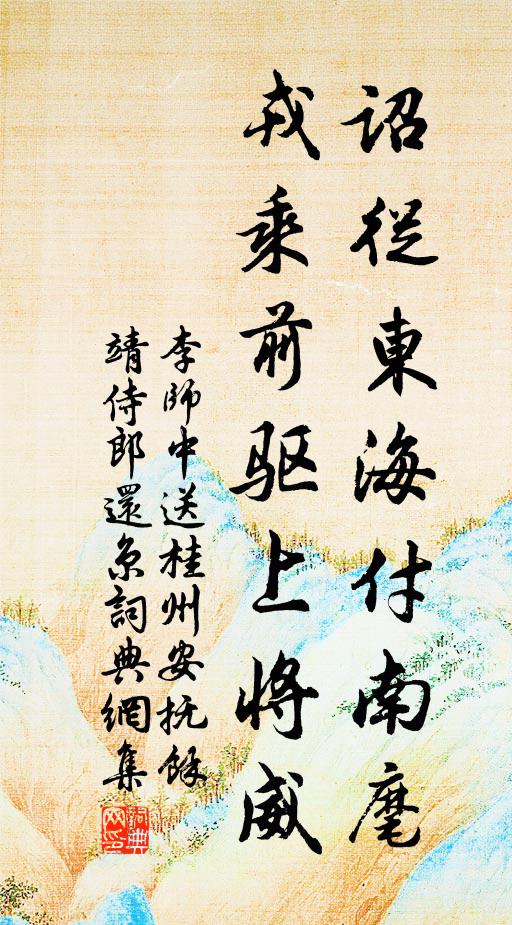 詔從東海付南麾
戎乘前驱上將威
李師中送桂州安抚餘
靖侍郎還京詞典網集